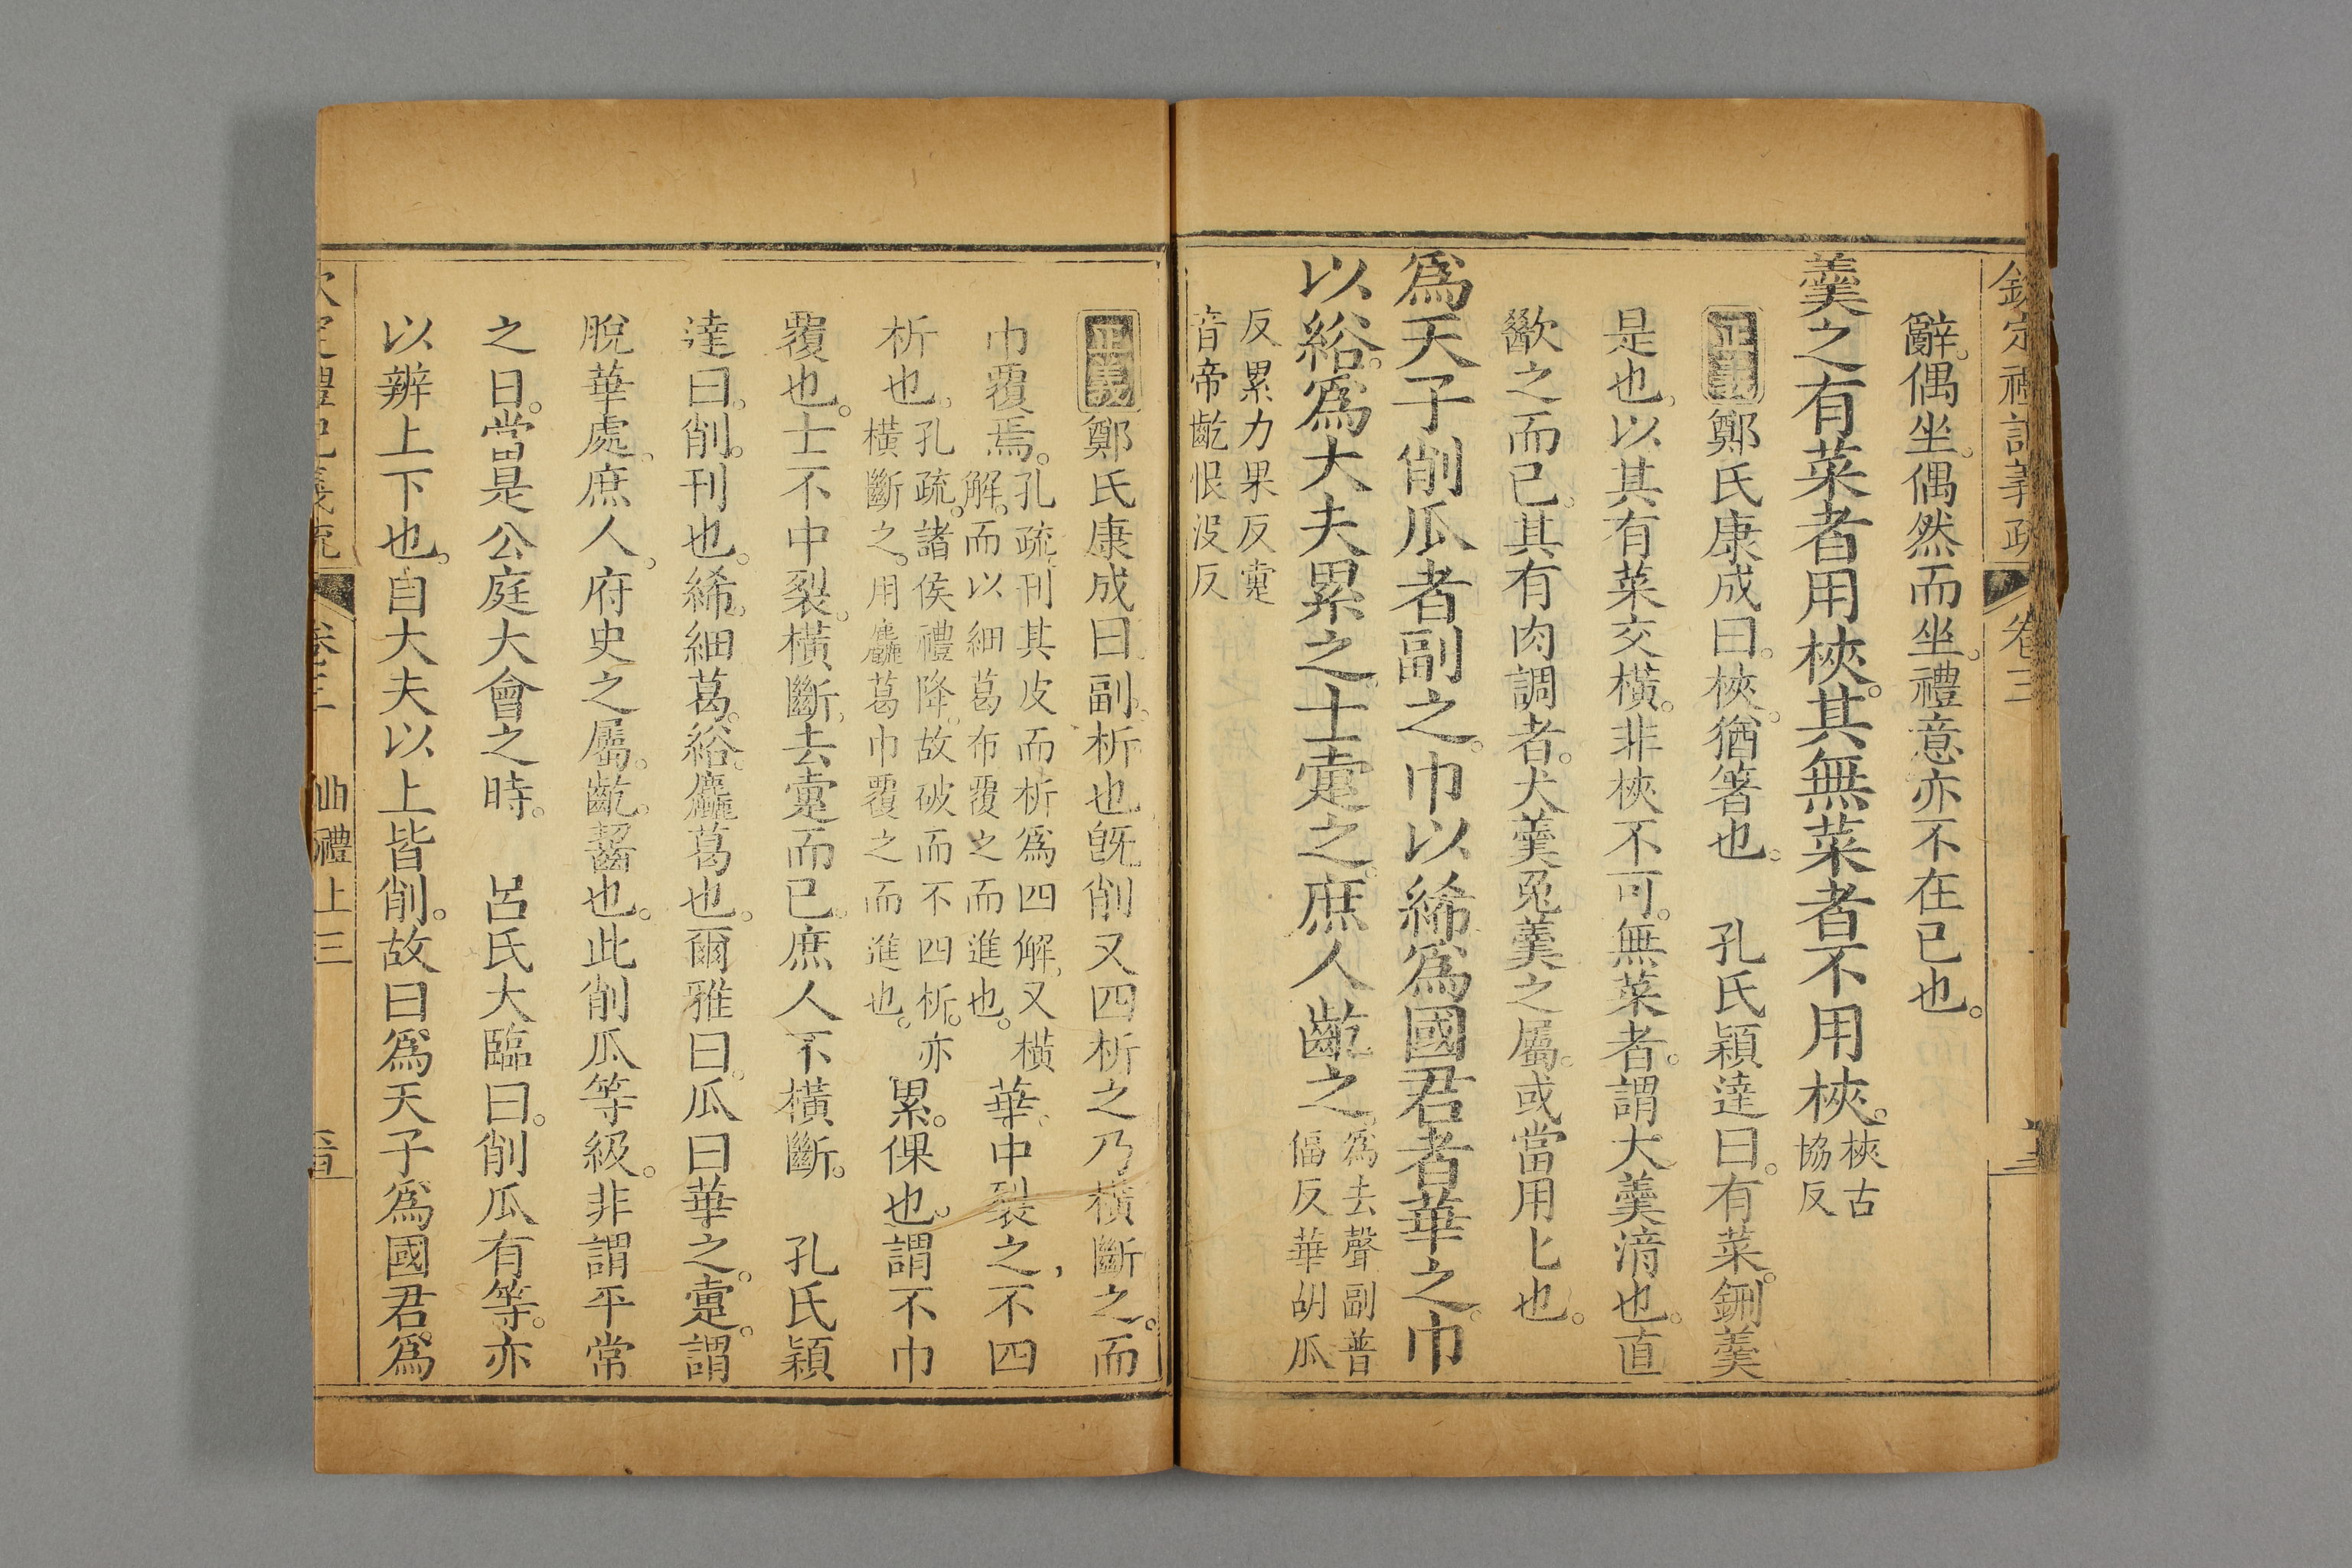 欽定禮記義疏 卷三
辭。偶坐。偶然而坐。禮意亦不在已也。
羹之有菜者用梜。其無菜者不用梜。梜古
協反
正義鄭氏康成曰。梜。猶箸也。 孔氏穎達曰。有菜。鉶羹
是也。以其有菜交橫。非梜不可。無菜者。謂大羹湆也。直
歠之而已。其有肉調者。犬羹兔羹之屬。或當用匕也。
爲天子削瓜者副之。巾以絺。爲國君者華之。巾
以綌。爲大夫累之。士疐之。庶人齕之。爲去聲副普
偪反華胡瓜
反累力果反疐
音帝齕恨沒反
正義鄭氏康成曰。副。析也。旣削又四析之乃橫斷之。而
巾覆焉。孔疏。刊其皮而析爲四解。又橫
解。而以細葛布覆之而進也。華。中裂之。不四
析也。孔疏。諸侯禮降。故破而不四析。亦
橫斷之。用麤葛巾覆之而進也。累。倮也。謂不巾
覆也。士不中裂。橫斷。去疐而已。庶人不橫斷。 孔氏穎
達曰。削。刊也。絺。細葛。綌。麤葛也。爾雅曰。瓜曰華之。疐。謂
脫華處。庶人。府史之屬。齕。齧也。此削瓜等級。非謂平常
之日。當是公庭大會之時。 呂氏大臨曰。削瓜有等。亦
以辨上下也。自大夫以上皆削。故曰爲天子爲國君。爲
欽定禮記義疏 卷三 曲禮上三